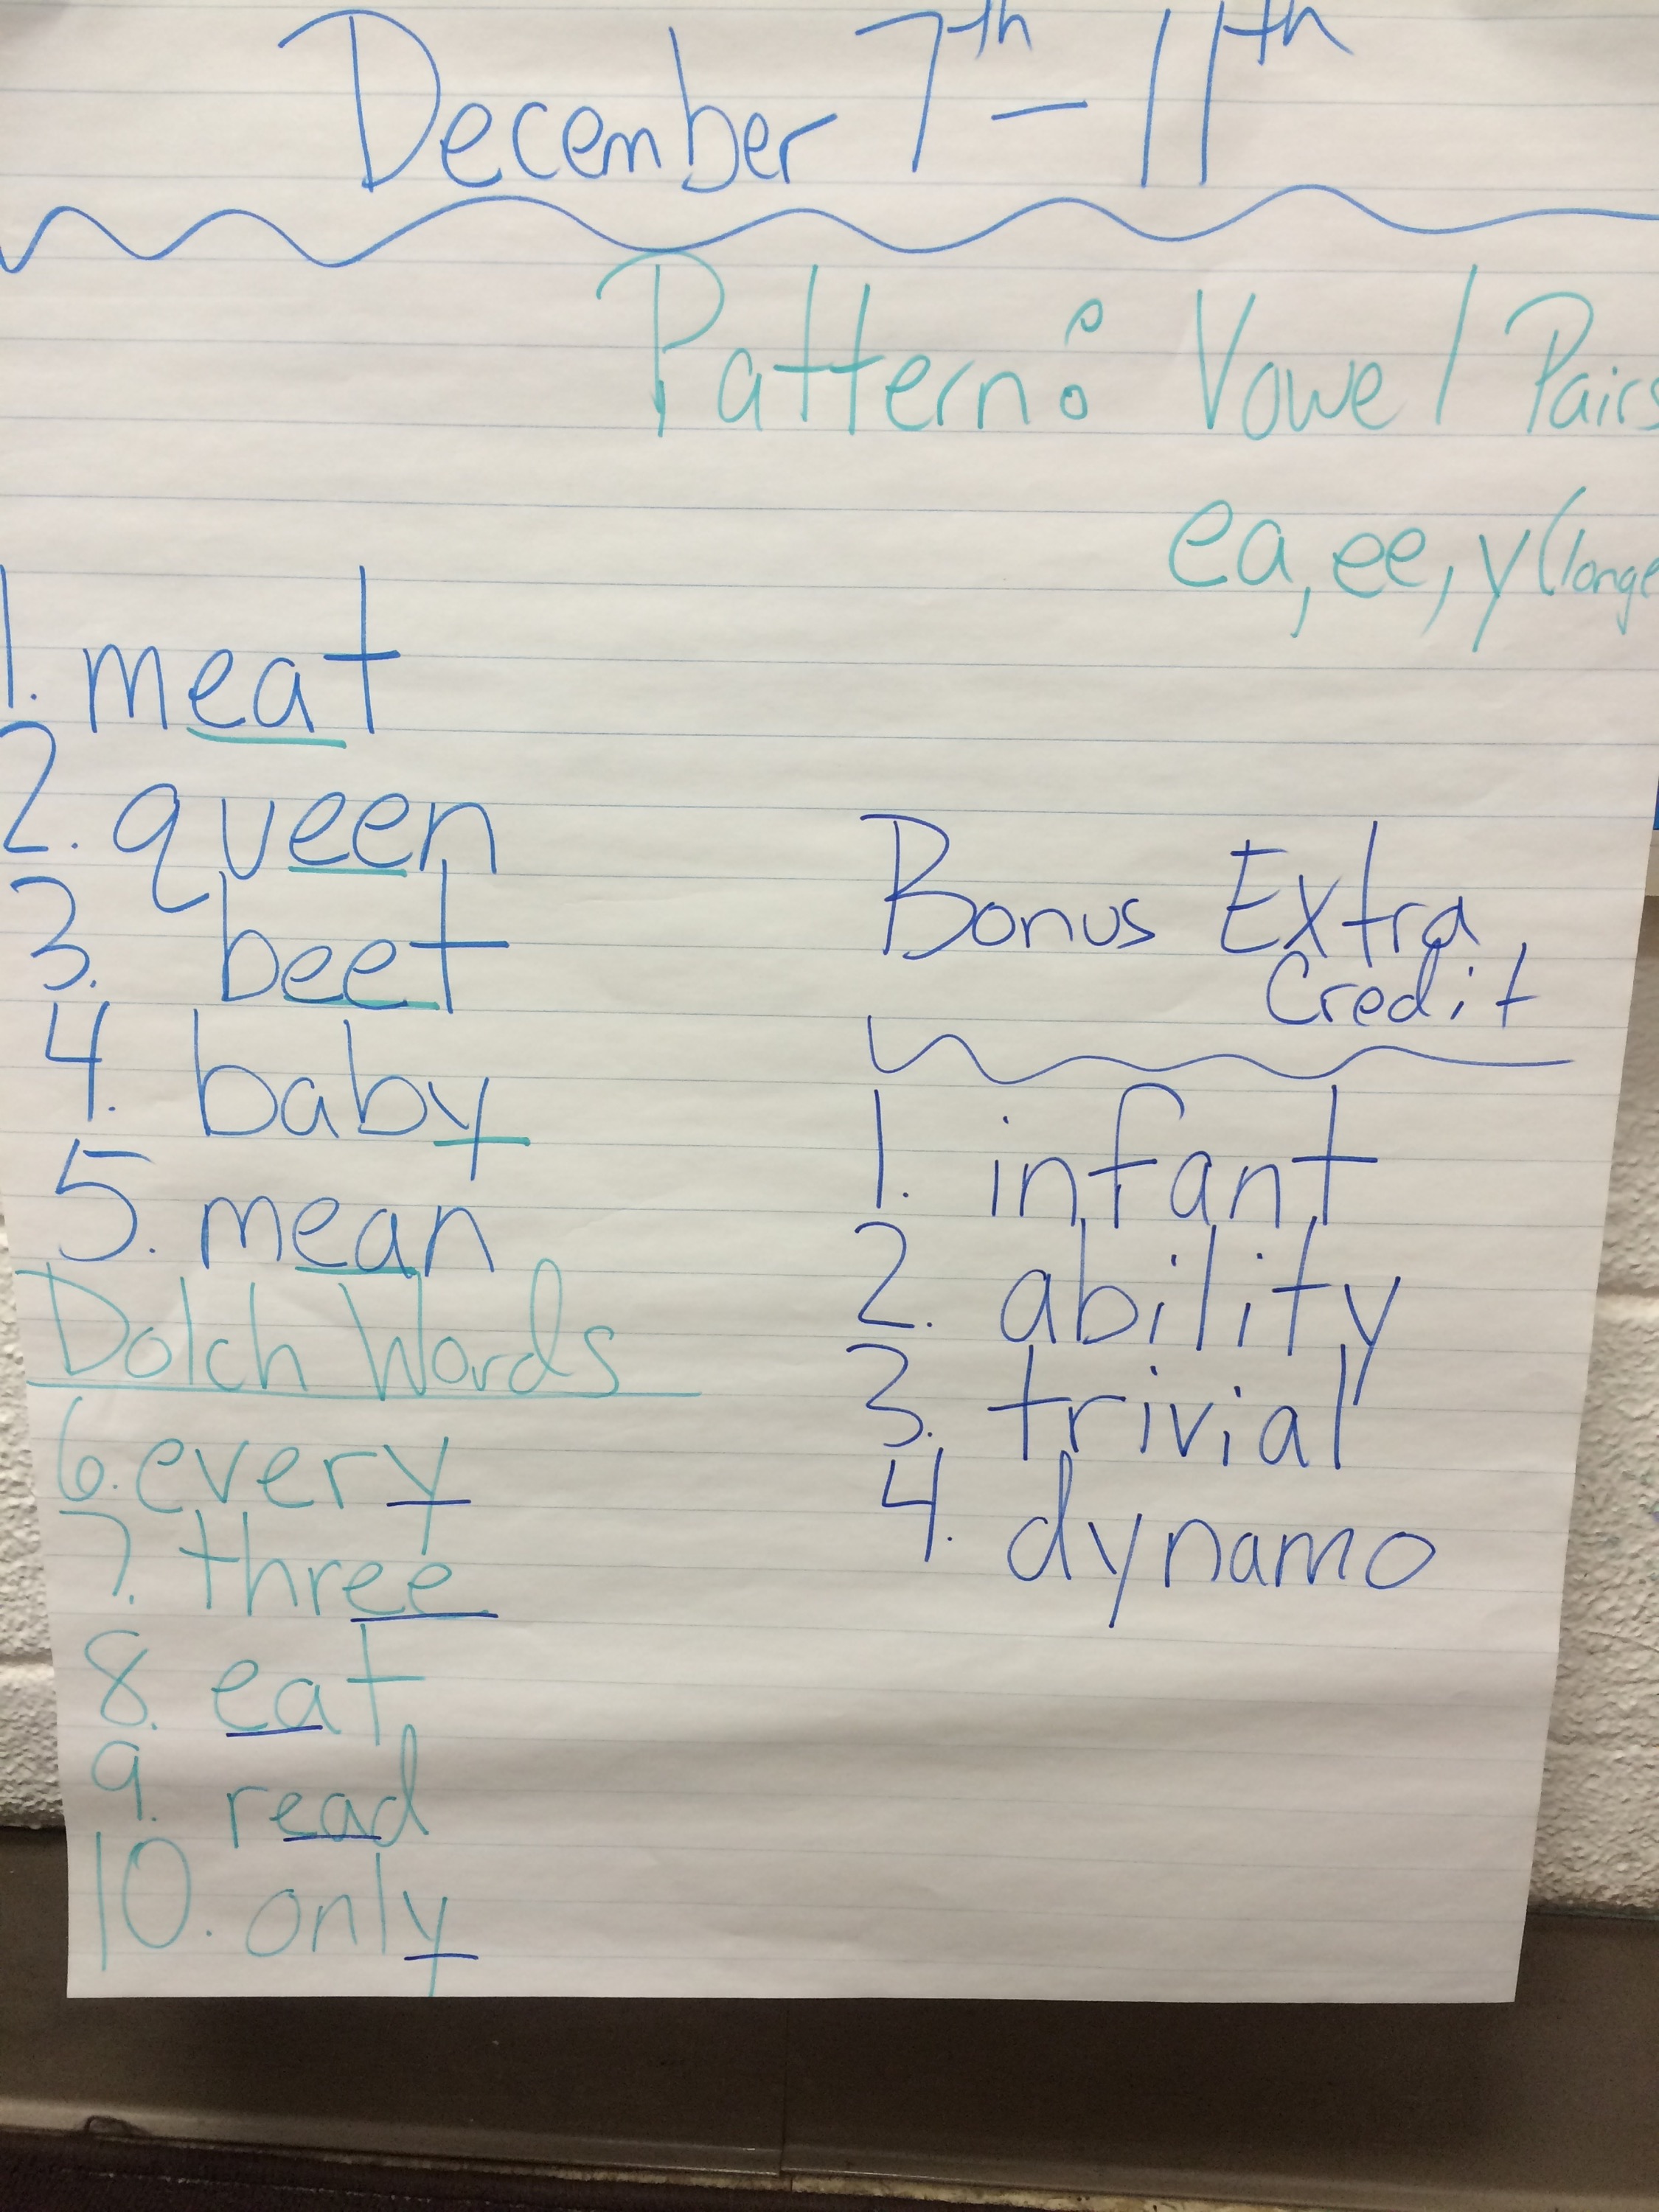 December 7th - 11th
Pattern: Vowel Pairs
ea, ee, y (long e
1. meat
2. queen
3. beet
4. baby
5. mean
Dolch Words
6. every
7. three
8. eat
9. read
10. only
Bonus Extra
Credit
1. infant
2. ability
3. trivial
4. dynamo